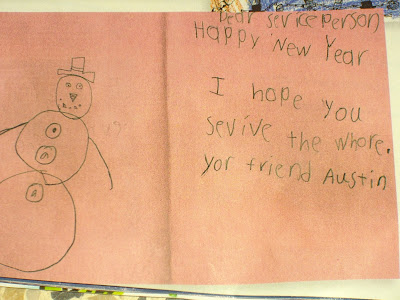 Dear serviceperson
Happy New Year
I hope you
sevive the whore.
yor friend Austin